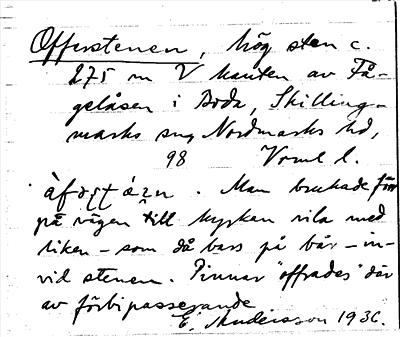 Offerstenen, hög sten c.
275 m V kanten av Få-
gelåsen i Boda, Skilling-
marks sng Nordmarks hd,
98 Vrml l.
Man brukade förr
på vägen till kyrkan vila med
liken - som då bars på bår - in-
vid stenen. Pinnar "offrades" där
av förbipasserande
E. Andersson 1936.